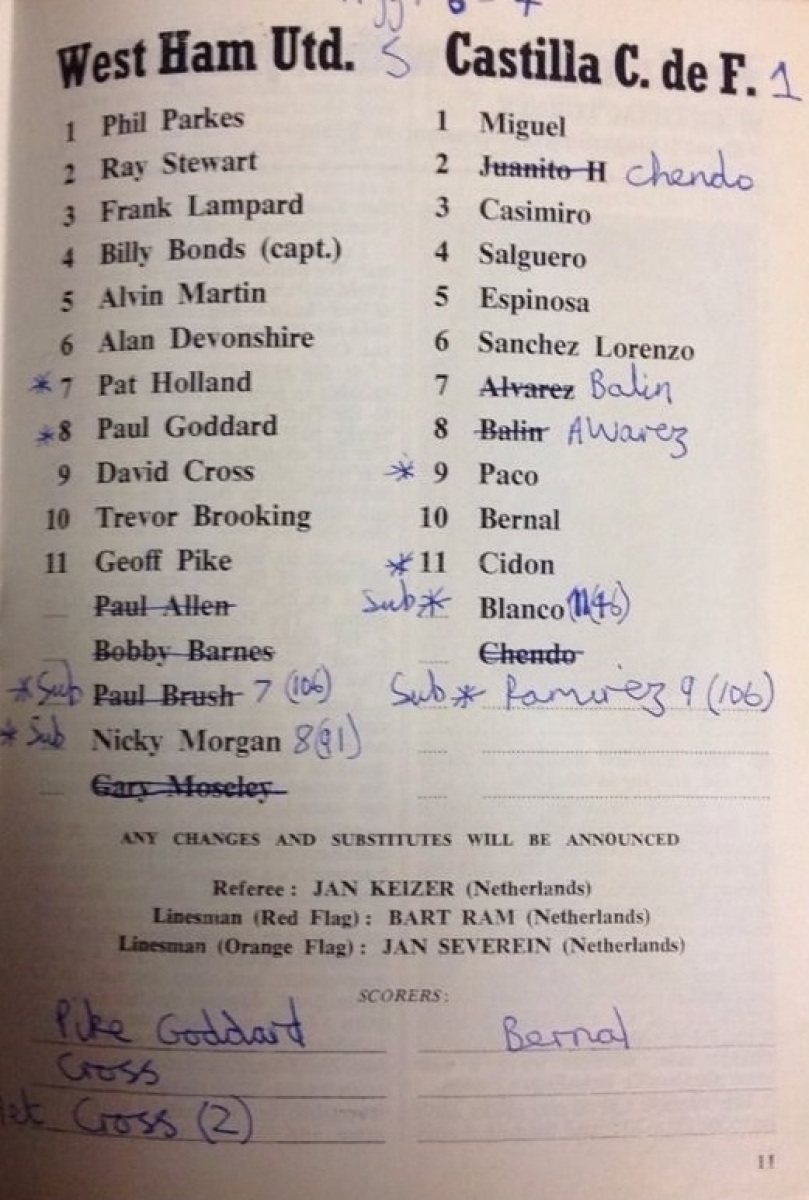 6-4
West Ham Utd. 5 Castilla C. de F. 1
1 Phil Parkes 1 Miguel
2 Ray Stewart 2 Juanito H Chendo
3 Frank Lampard 3 Casimiro
4 Billy Bonds (capt.) 4 Salguero
5 Alvin Martin 5 Espinosa
6 Alan Devonshire 6 Sanchez Lorenzo
* 7 Pat Holland 7 Alvarez Balin
* 8 Paul Goddard 8 Balin Alvarez
9 David Cross * 9 Paco
10 Trevor Brooking 10 Bernal
11 Geoff Pike * 11 Cidon
Paul Allen Sub * Blanco 11(46)
Bobby Barnes Chendo
* Sub Paul Brush 7 (106) Sub * Ramirez 9 (106)
* Sub Nicky Morgan 8(91)
Gary Moseley
ANY CHANGES AND SUBSTITUTES WILL BE ANNOUNCED
Referee : JAN KEIZER (Netherlands)
Linesman (Red Flag) : BART RAM (Netherlands)
Linesman (Orange Flag) : JAN SEVEREIN (Netherlands)
SCORERS :
Pike Goddard Bernal
Cross
Cross (2)
11